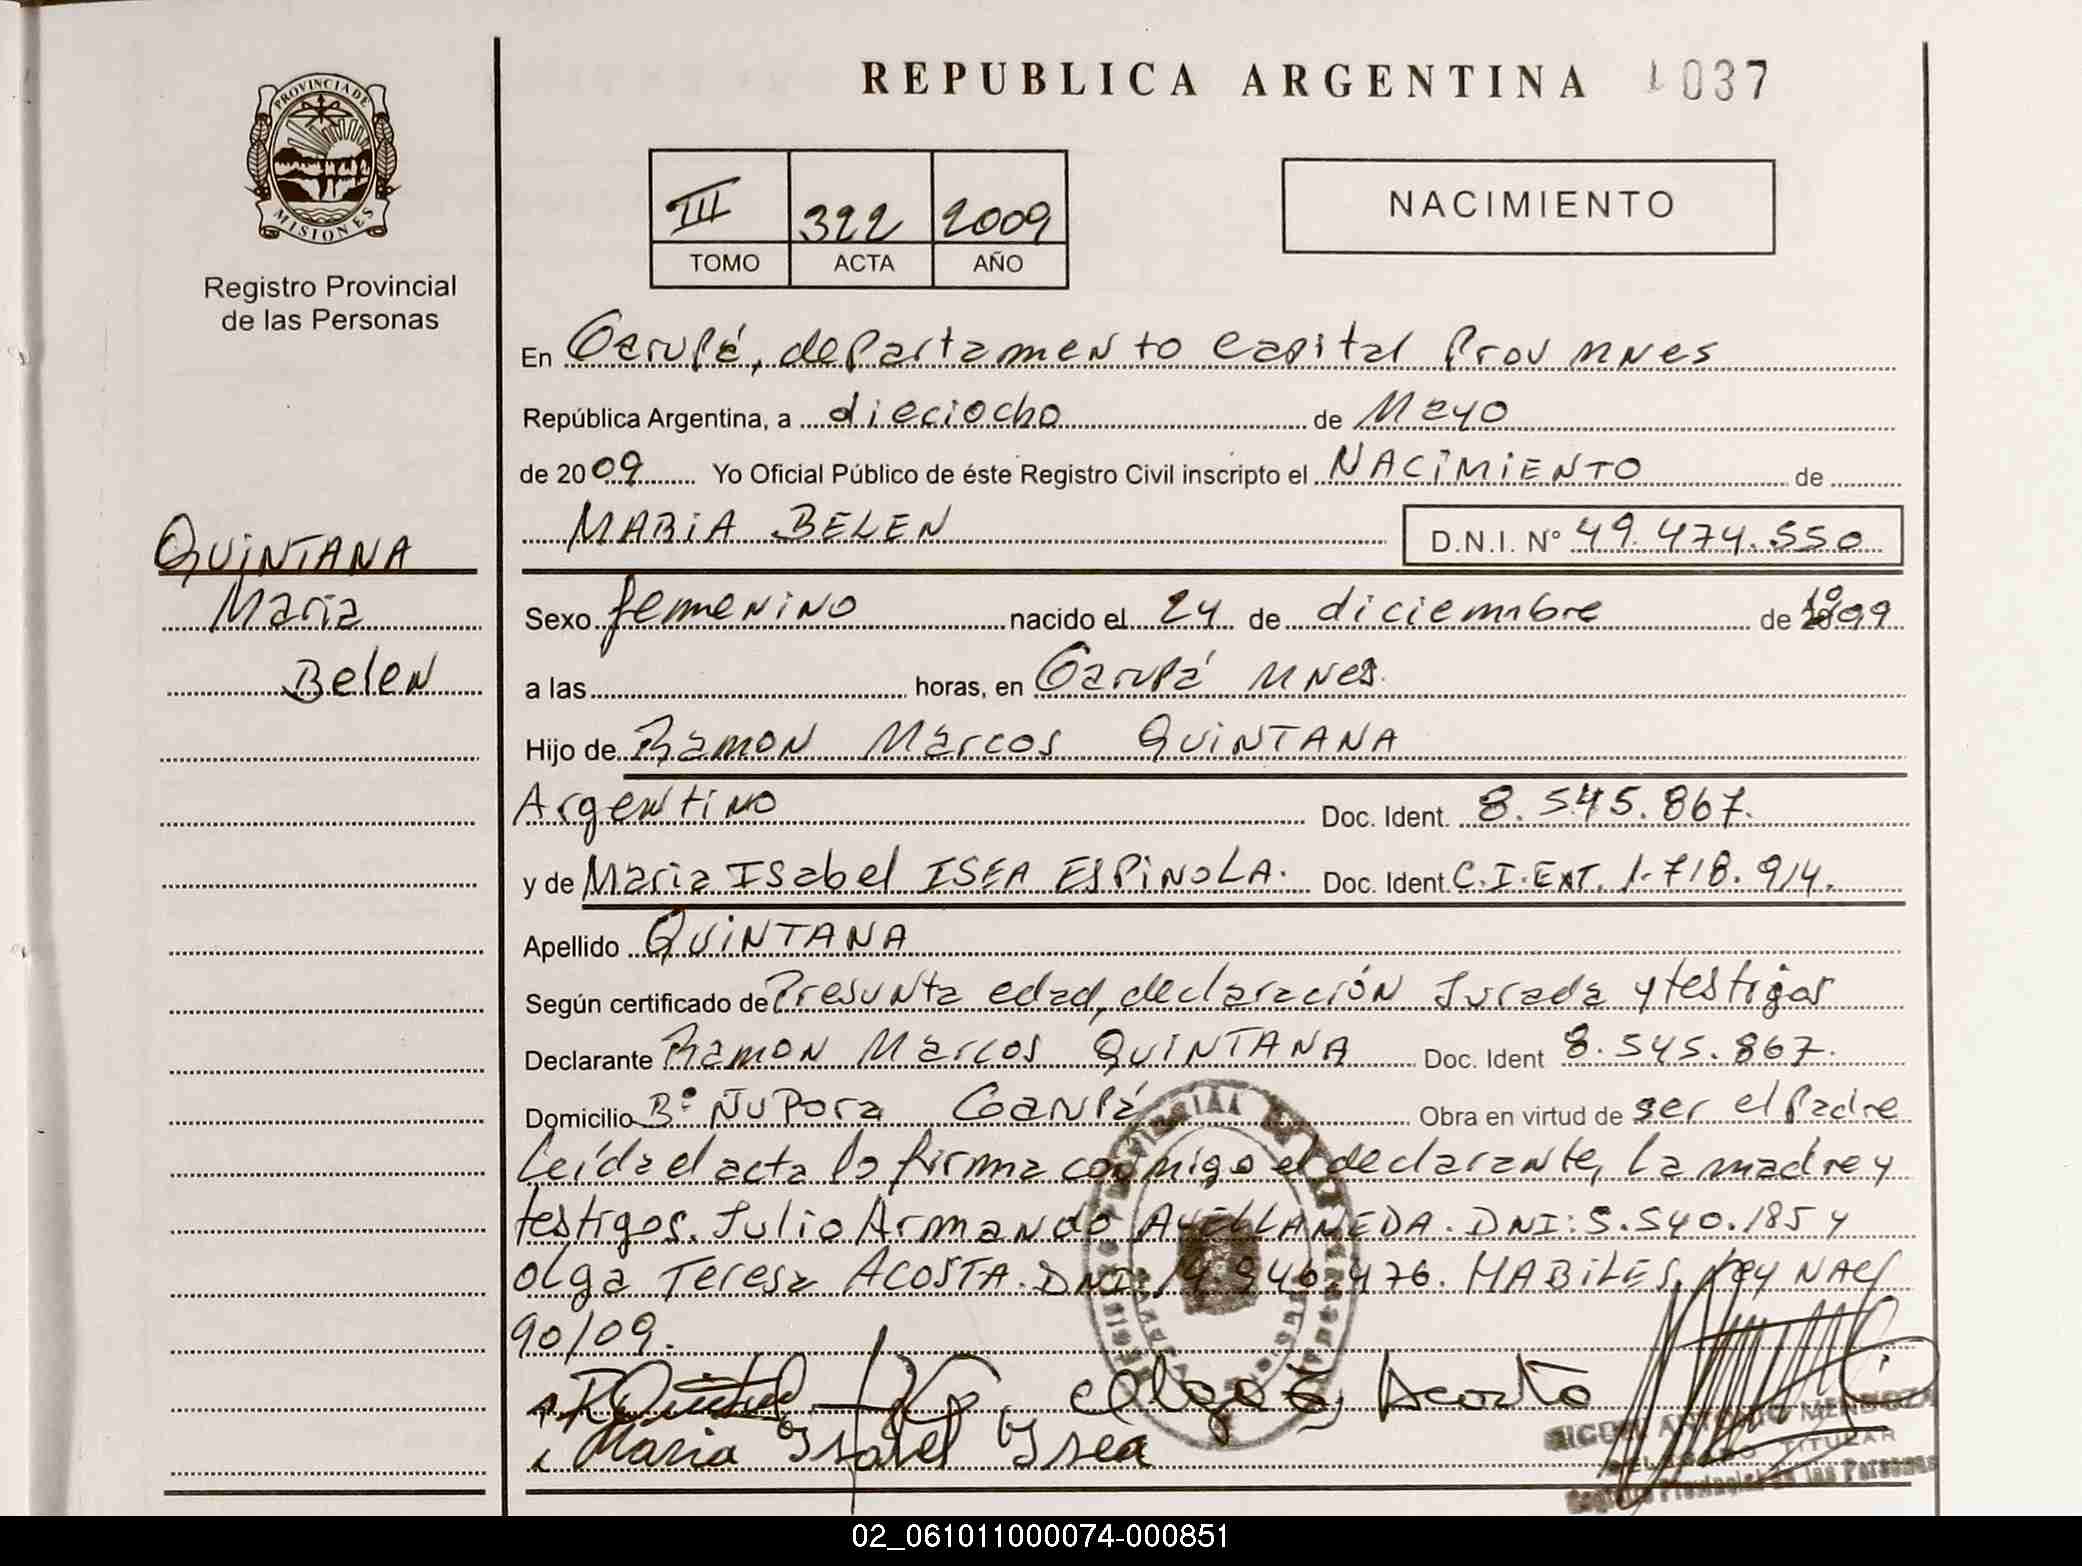 REPUBLICA ARGENTINA 1037
PROVINCIA DE
MISIONES
Registro Provincial
de las Personas
III 322 2009
TOMO ACTA AÑO
NACIMIENTO
En Garupá, departamento Capital Prov Mnes
República Argentina, a dieciocho de Mayo
de 2009 Yo Oficial Público de éste Registro Civil inscripto el NACIMIENTO de
MARIA BELEN D.N.I. N° 49.474.550
QUINTANA
Maria
Belen
Sexo femenino nacido el 24 de diciembre de 1999
a las horas, en Garupá Mnes.
Hijo de Ramon Marcos QUINTANA
Argentino Doc. Ident. 8.545.867.
y de Maria Isabel ISEA ESPINOLA. Doc. Ident. C.I.EXT. 1.718.914.
Apellido QUINTANA
Según certificado de Presunta edad, declaración Jurada y testigos
Declarante Ramon Marcos QUINTANA Doc. Ident 8.545.867.
Domicilio B° Ñu Pora Garupá Obra en virtud de ser el Padre
Leída el acta la firma conmigo el declarante, la madre y
testigos. Julio Armando AVELLANEDA. DNI: 5.540.185 y
Olga Teresa ACOSTA. DNI: 14.946.476. HABILES. Ley NAC
90/09.
Olga T, Acosta
Maria Isabel Isea
ANTONIO MENDOZA
DELEGADO TITULAR
Registro Provincial de las Personas
02_061011000074-000851